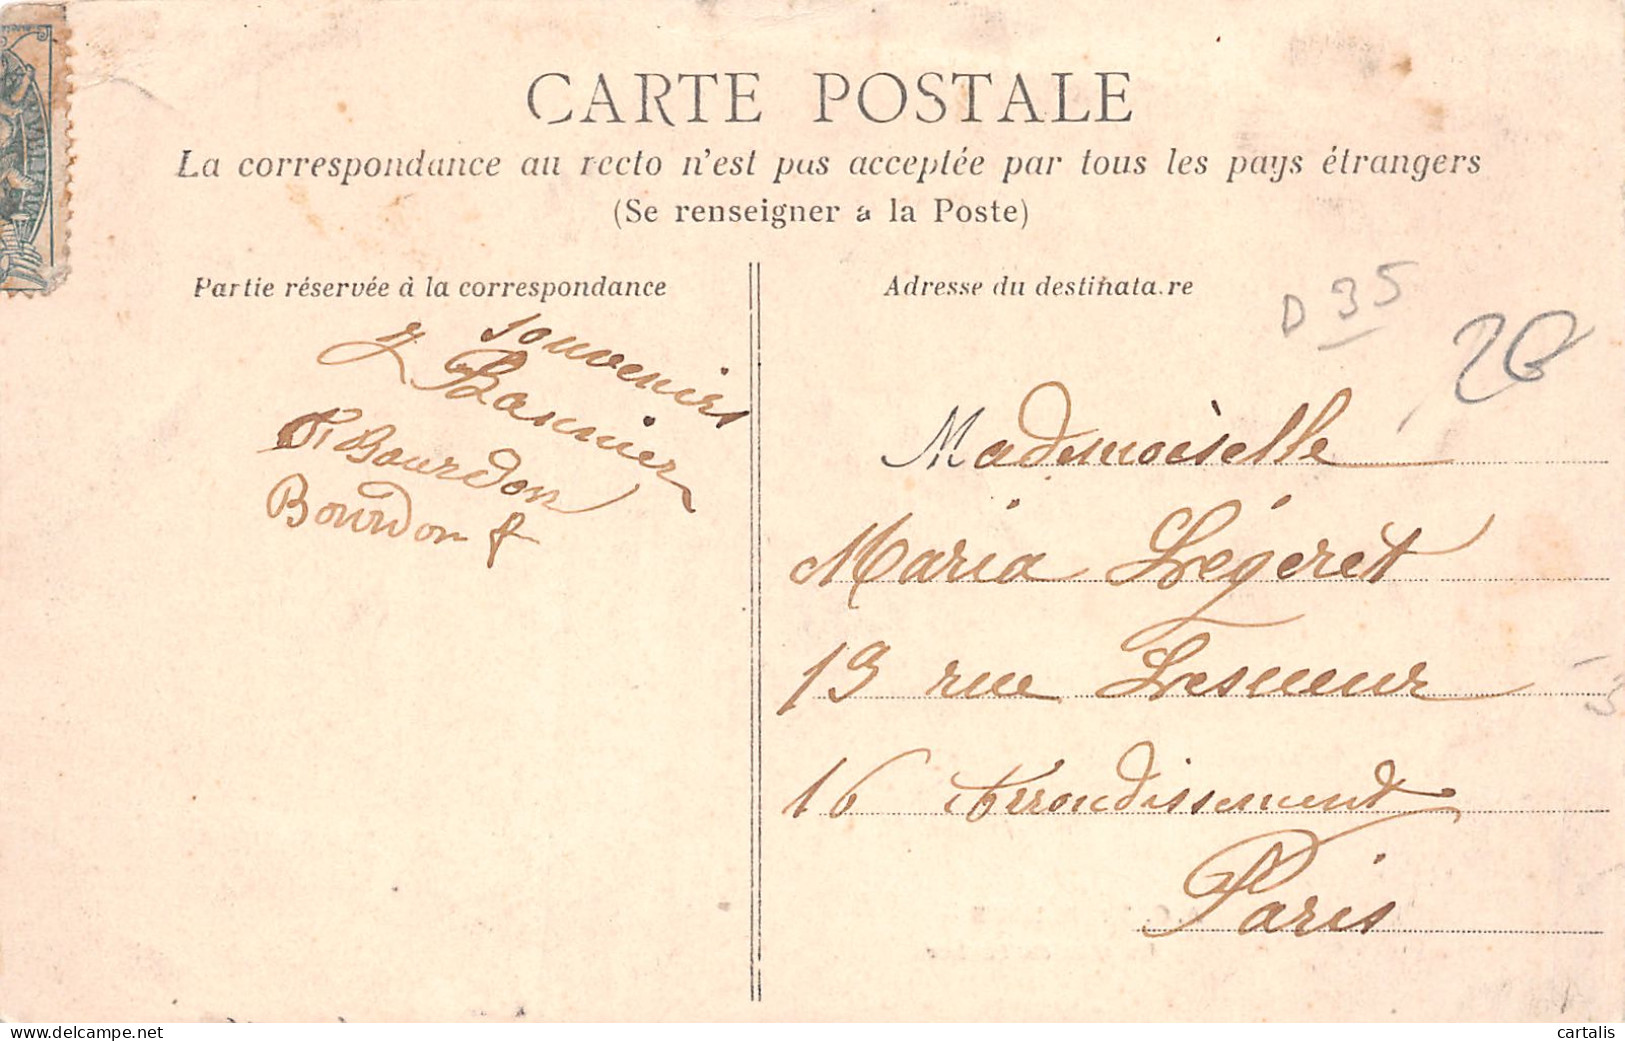 CARTE POSTALE
La correspondance au recto n'est pas acceptée par tous les pays étrangers
(Se renseigner a la Poste)
Partie réservée à la correspondance
souvenirs
Y Bannier
P. Bourdon
Bourdon f
Adresse du destinata.re
D 35
Mademoiselle
Maria Légerèt
13 rue Lesueur
16 Arrondissement
Paris
cartalis